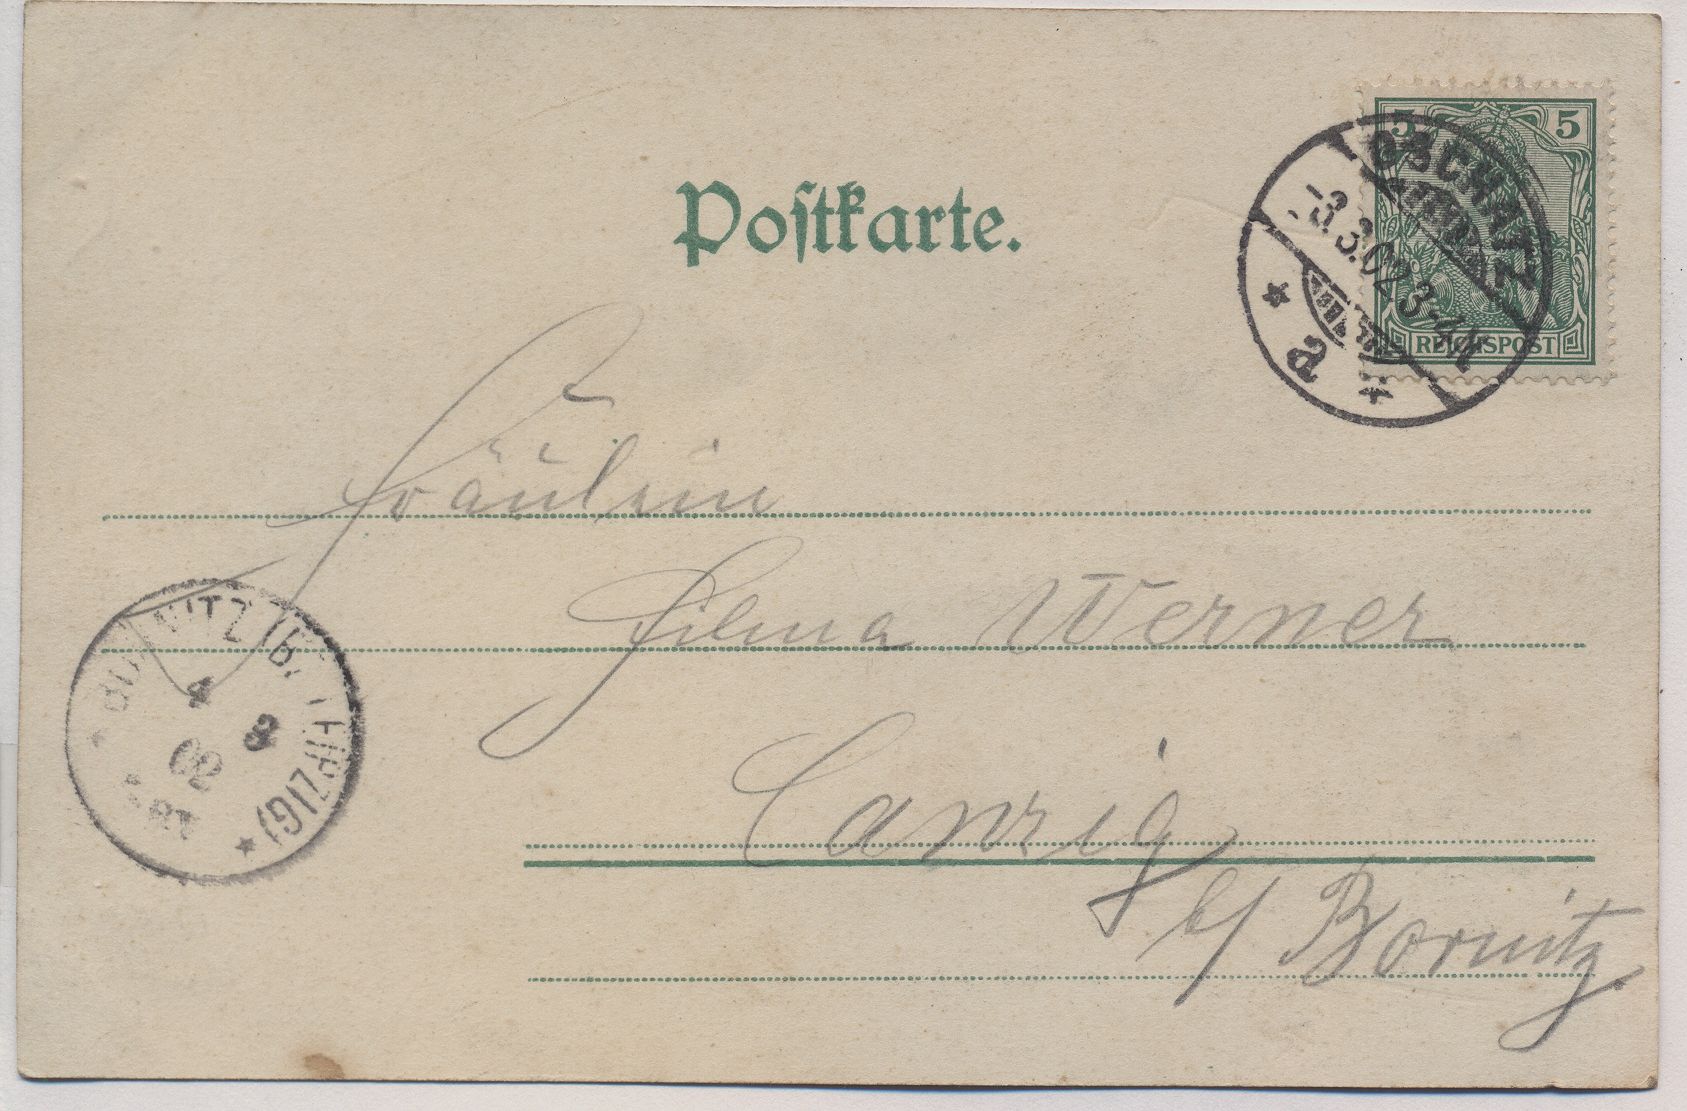 Postkarte.
5 5
OSCHATZ
-3.3.02 3-4N
a
REICHSPOST
Fräulein
Werner
Canzig
b/ Bornitz.
BORNITZ (BZ. LEIPZIG)
4
3
02